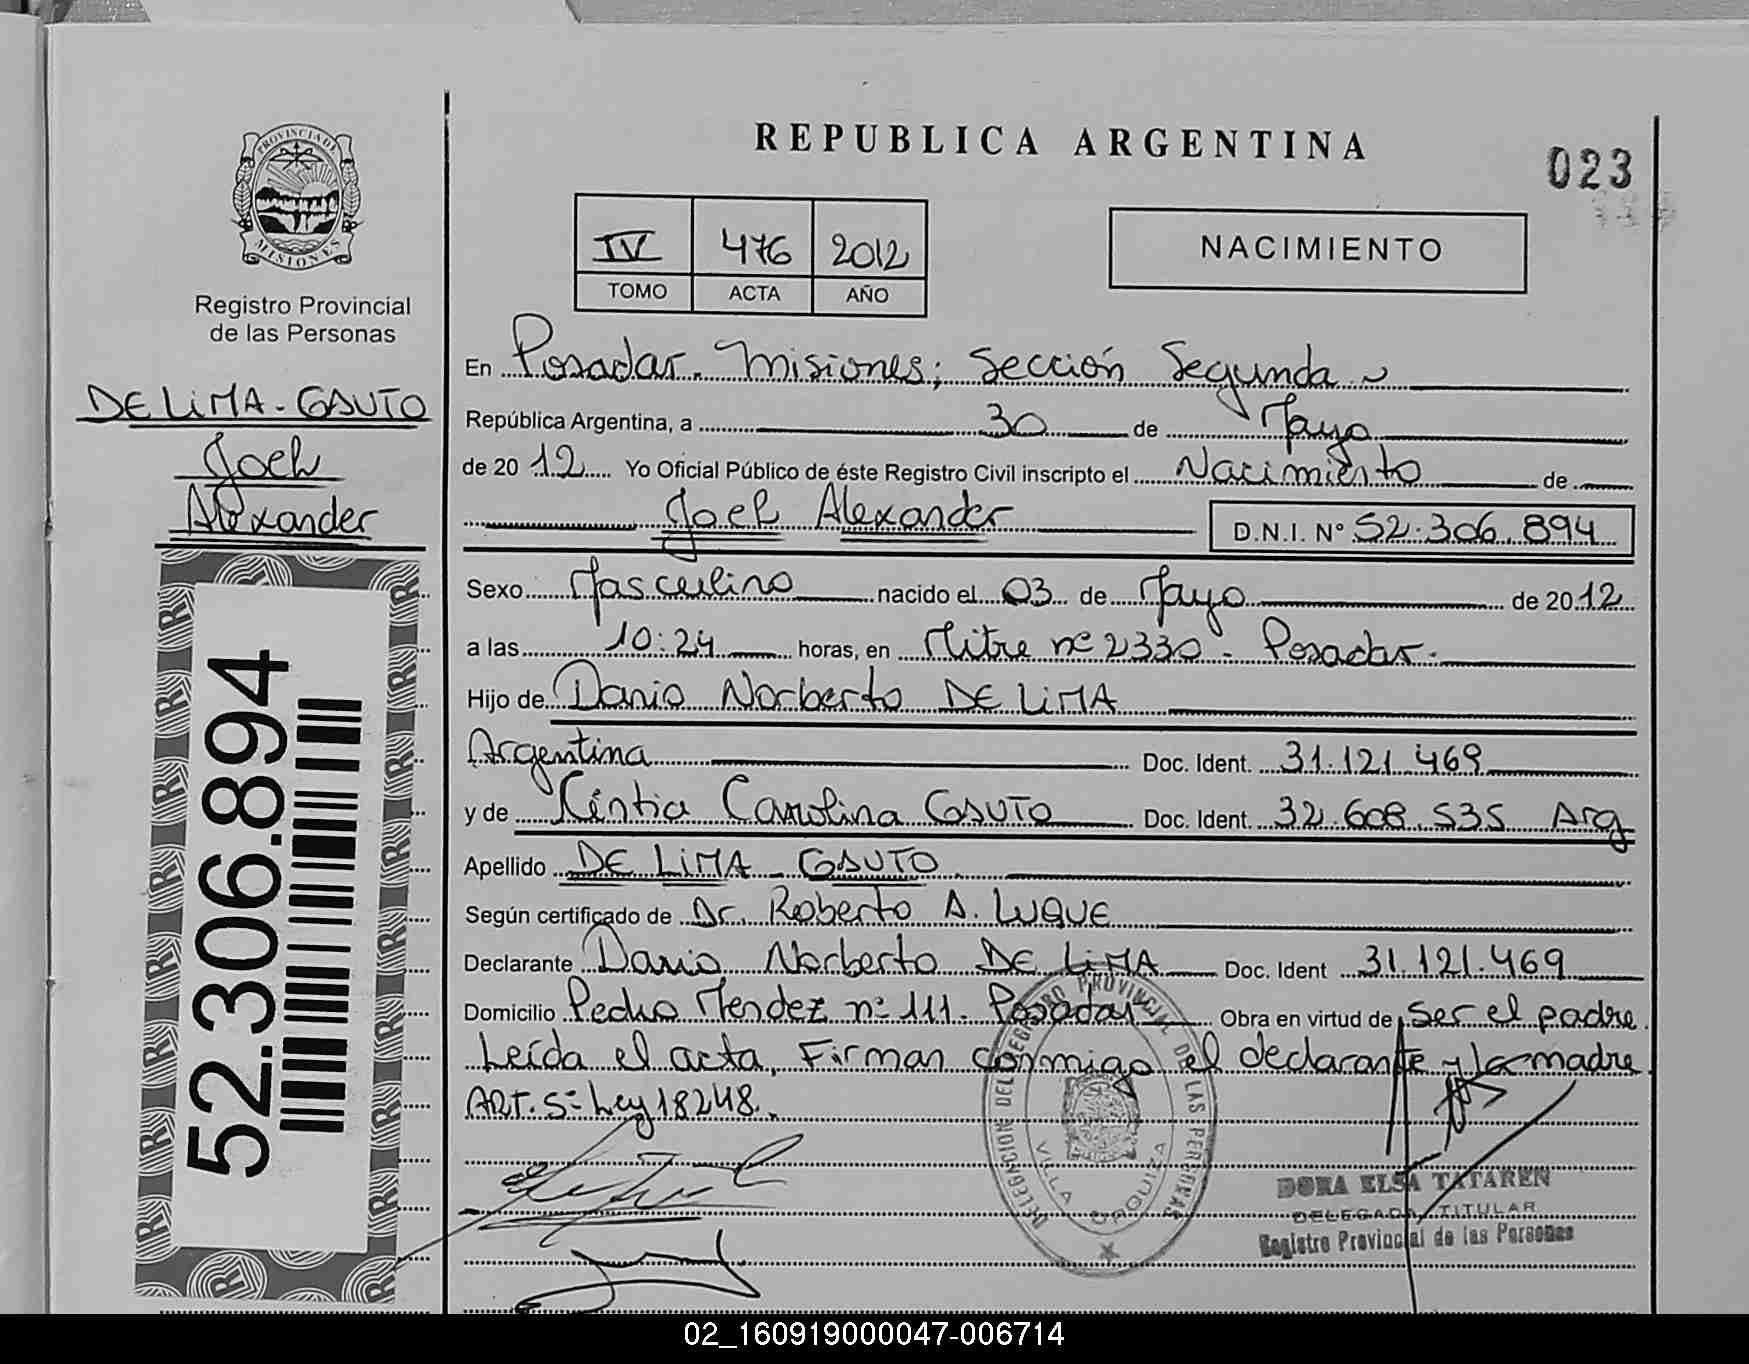 REPUBLICA ARGENTINA
023
PROVINCIA DE
MISIONES
Registro Provincial
de las Personas
IV 476 2012
TOMO ACTA AÑO
NACIMIENTO
DE LIMA - GAUTO
Joel
Alexander
52.306.894
En Posadas. Misiones; Sección Segunda
República Argentina, a 30 de Mayo
de 2012 Yo Oficial Público de éste Registro Civil inscripto el Nacimiento de
Joel Alexander D.N.I. Nº 52.306.894
Sexo Masculino nacido el 03 de Mayo de 2012
a las 10:24 horas, en Mitre nº 2330 - Posadas.
Hijo de Dario Norberto DE LIMA
Argentina Doc. Ident. 31.121.469
y de Cintia Carolina GAUTO Doc. Ident. 32.608.535 Arg
Apellido DE LIMA - GAUTO
Según certificado de Dr. Roberto A. LUQUE
Declarante Dario Norberto DE LIMA Doc. Ident 31.121.469
Domicilio Pedro Mendez nº 111. Posadas Obra en virtud de ser el padre.
Leída el acta, Firman conmigo el declarante y la madre.
ART. 5º Ley 18248.
DELEGACION DEL REGISTRO PROVINCIAL DE LAS PERSONAS
VILLA URQUIZA
DORA ELSA TATAREN
DELEGADA TITULAR
Registro Provincial de las Personas
02_160919000047-006714